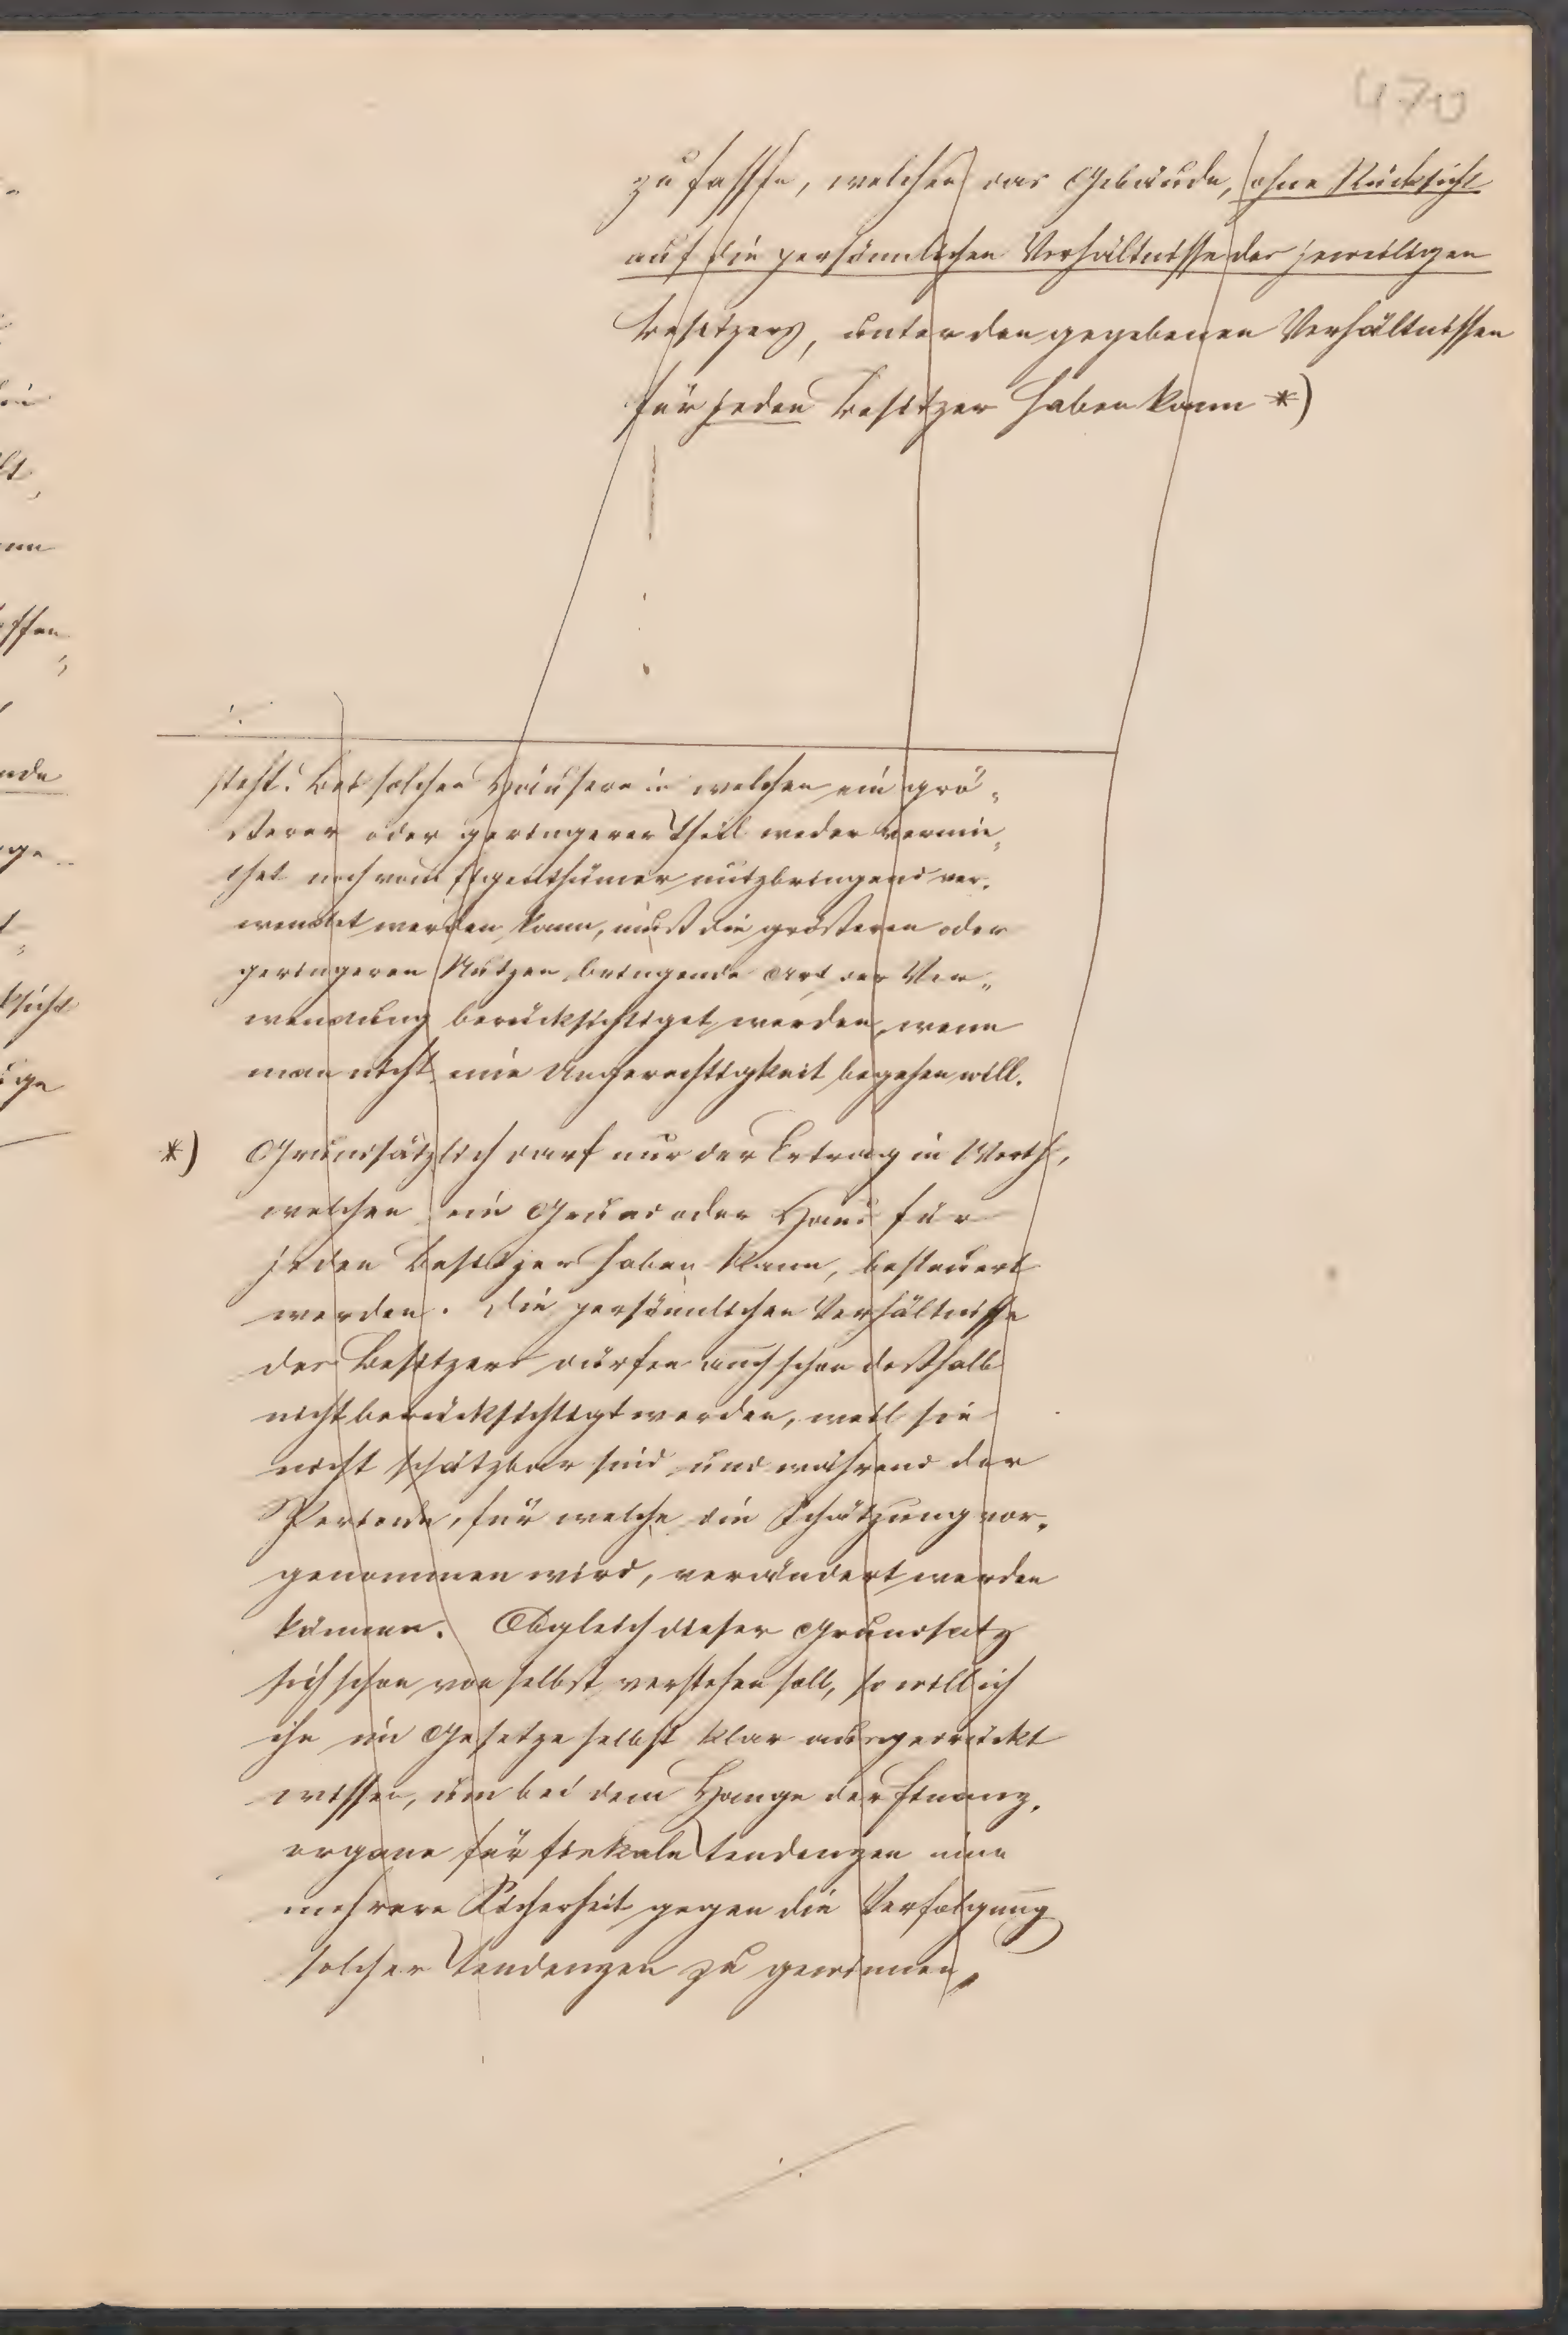 470
zu fassen, welchen das Gebäude, ohne Rücksicht
auf die persönlichen Verhältnisse des jeweiligen
Besitzers, unter den gegebenen Verhältnissen
für jeden Besitzer haben kann *)
steht. Bei solchen Häusern in welchen ein grö„
ßerer oder geringerer Theil weder vermie„
thet noch vom Eigenthümer nutzbringend ver„
wendet werden kann, muß die größeren oder
geringeren Nutzen bringende Art der Ver„
wendung berücksichtiget werden, wenn
man nicht eine Ungerechtigkeit begehen will.
*) Grundsätzlich darf nur der Ertrag im Werth,
welchen ein Grund oder Haus für
jeden Besitzer haben kann, besteuert
werden. Die persönlichen Verhältnisse
des Besitzers dürfen auch schon deßhalb
nicht berücksichtigt werden, weil sie
nicht schätzbar sind und während der
Periode, für welche die Schätzung vor„
genommen wird, verändert werden
können. Obgleich dieser Grundsatz
sich schon von selbst verstehen soll, so will ich
ihn im Gesetze selbst klar ausgedrückt
wissen, um bei dem Hange der Finanz„
organe für fiskale Tendenzen eine
mehrere Sicherheit gegen die Verfolgung
solcher Tendenzen zu gewinnen,